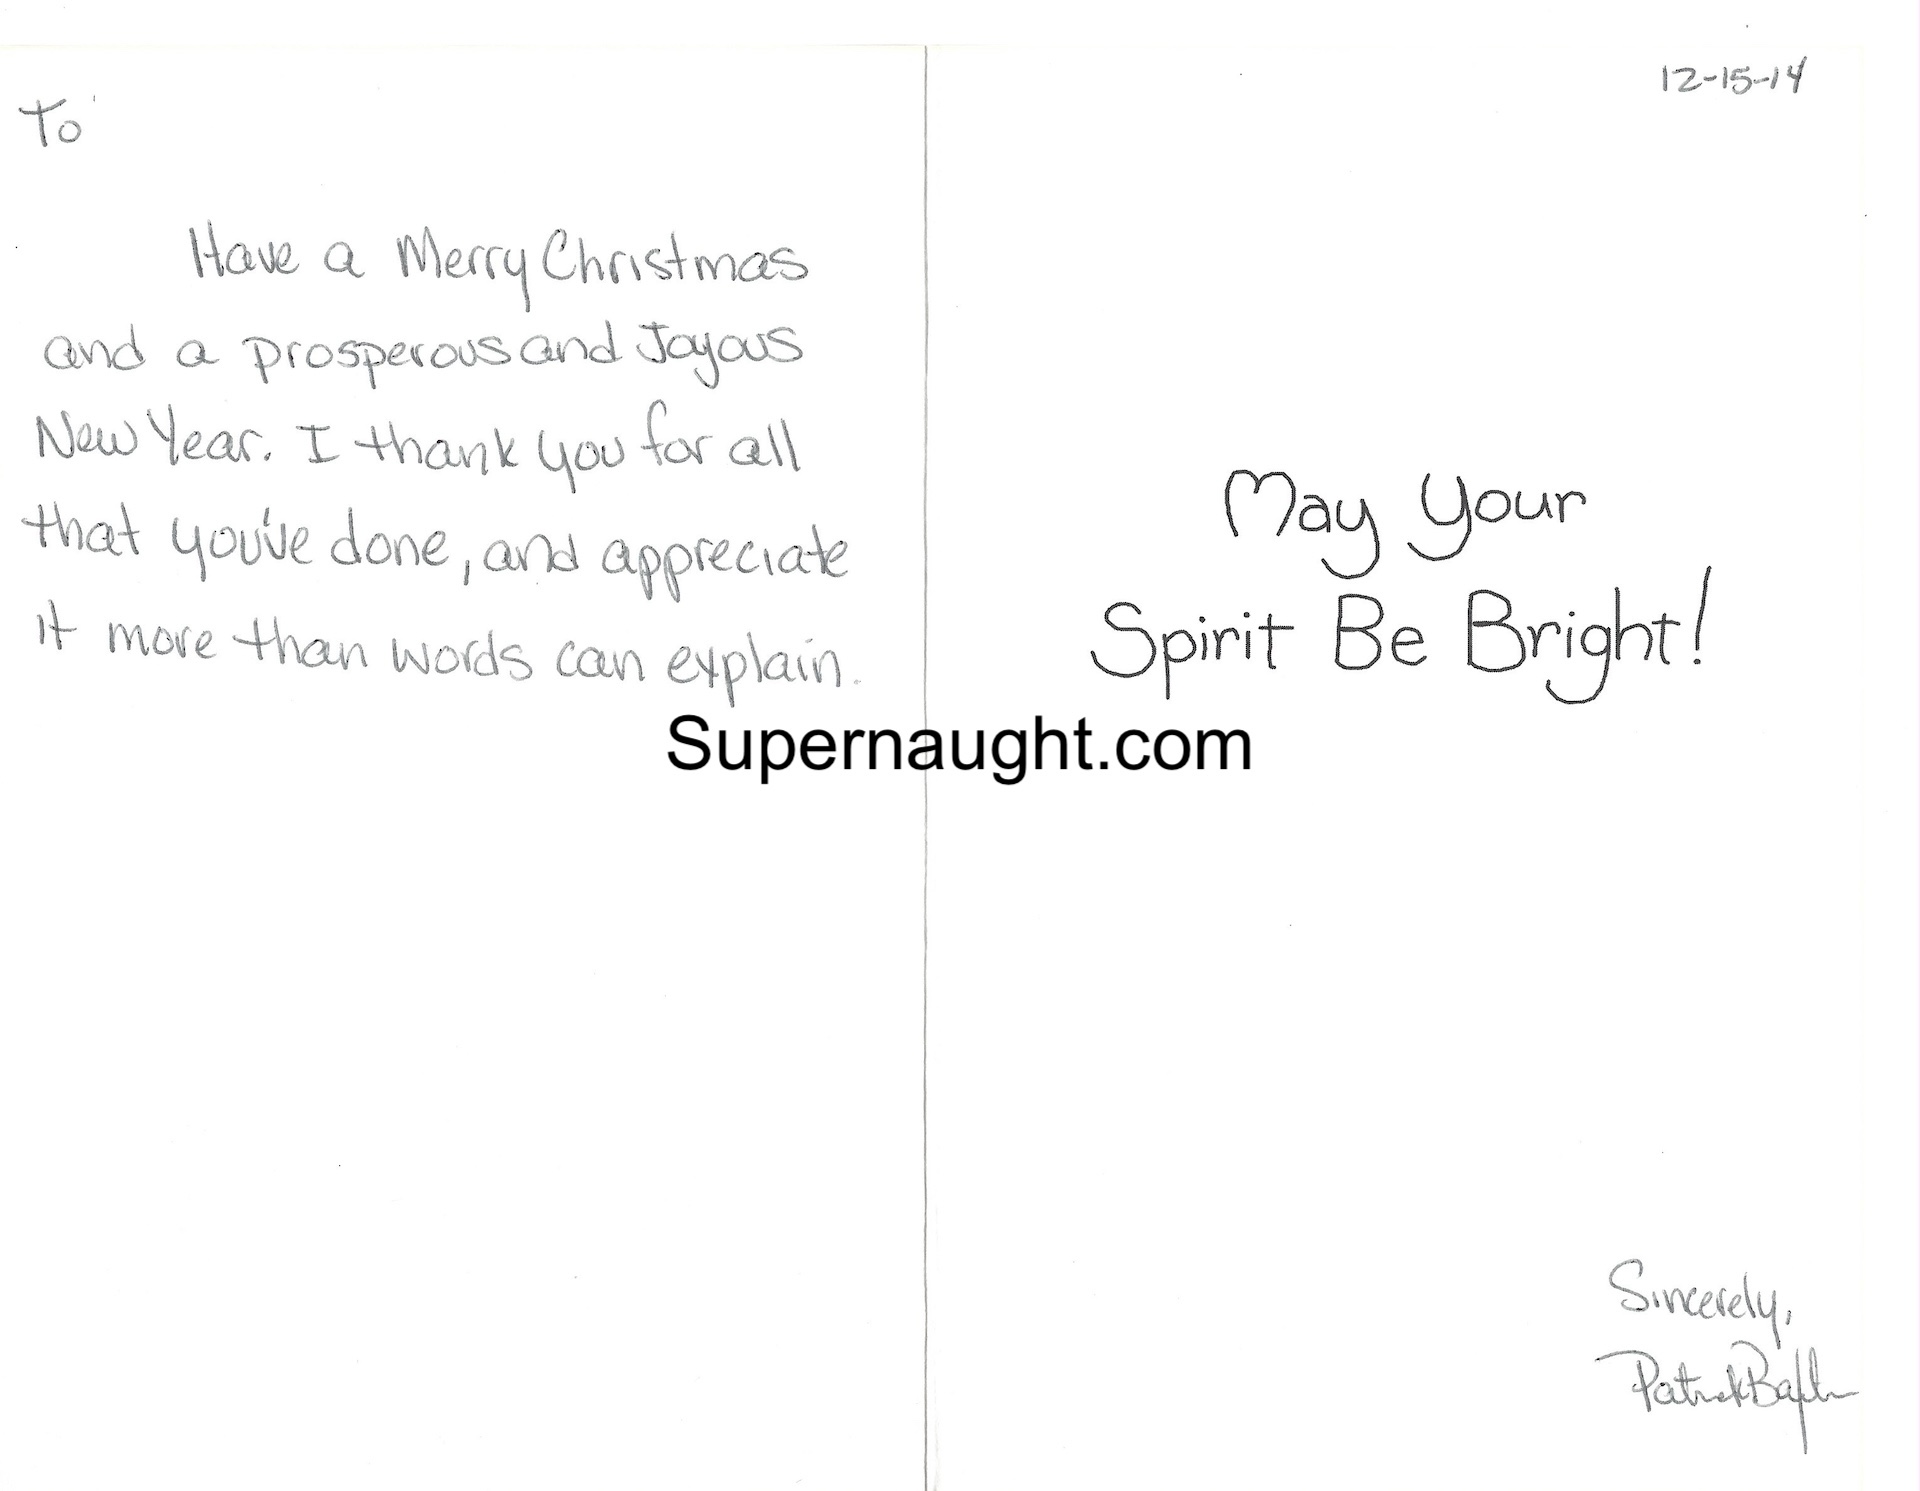 To
Have a Merry Christmas
and a prosperous and Joyous
New Year. I thank you for all
that you've done, and appreciate
it more than words can explain.
12-15-14
May Your
Spirit Be Bright!
Supernaught.com
Sincerely,
Patrick